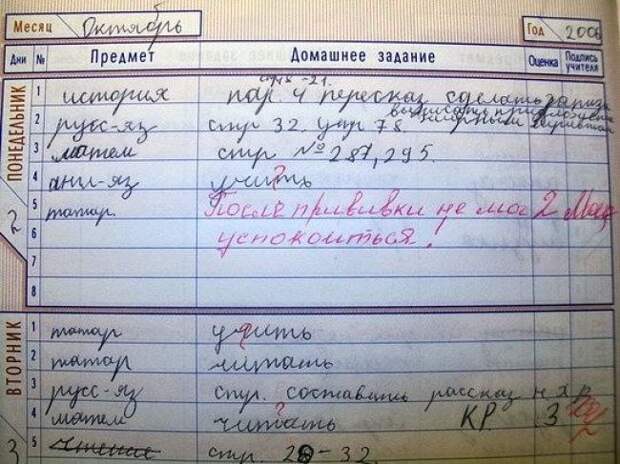 Месяц Октябрь Год 2006
Дни № Предмет Домашнее задание Оценка Подпись учителя
ПОНЕДЕЛЬНИК 2
стр -21.
1 история пар. 4 пересказ сделать
выписать
2 русс-яз стр 32. упр 78
3 матем стр №287,295.
4 анг-яз учить
?
5 татар. После прививки не мог 2
6 успокоиться!
7
8
ВТОРНИК 3
1 татар учить
2 татар читать
3 русс-яз стр. составить рассказ
?
4 матем читать К.Р. 3
5 чтение стр. 28-32